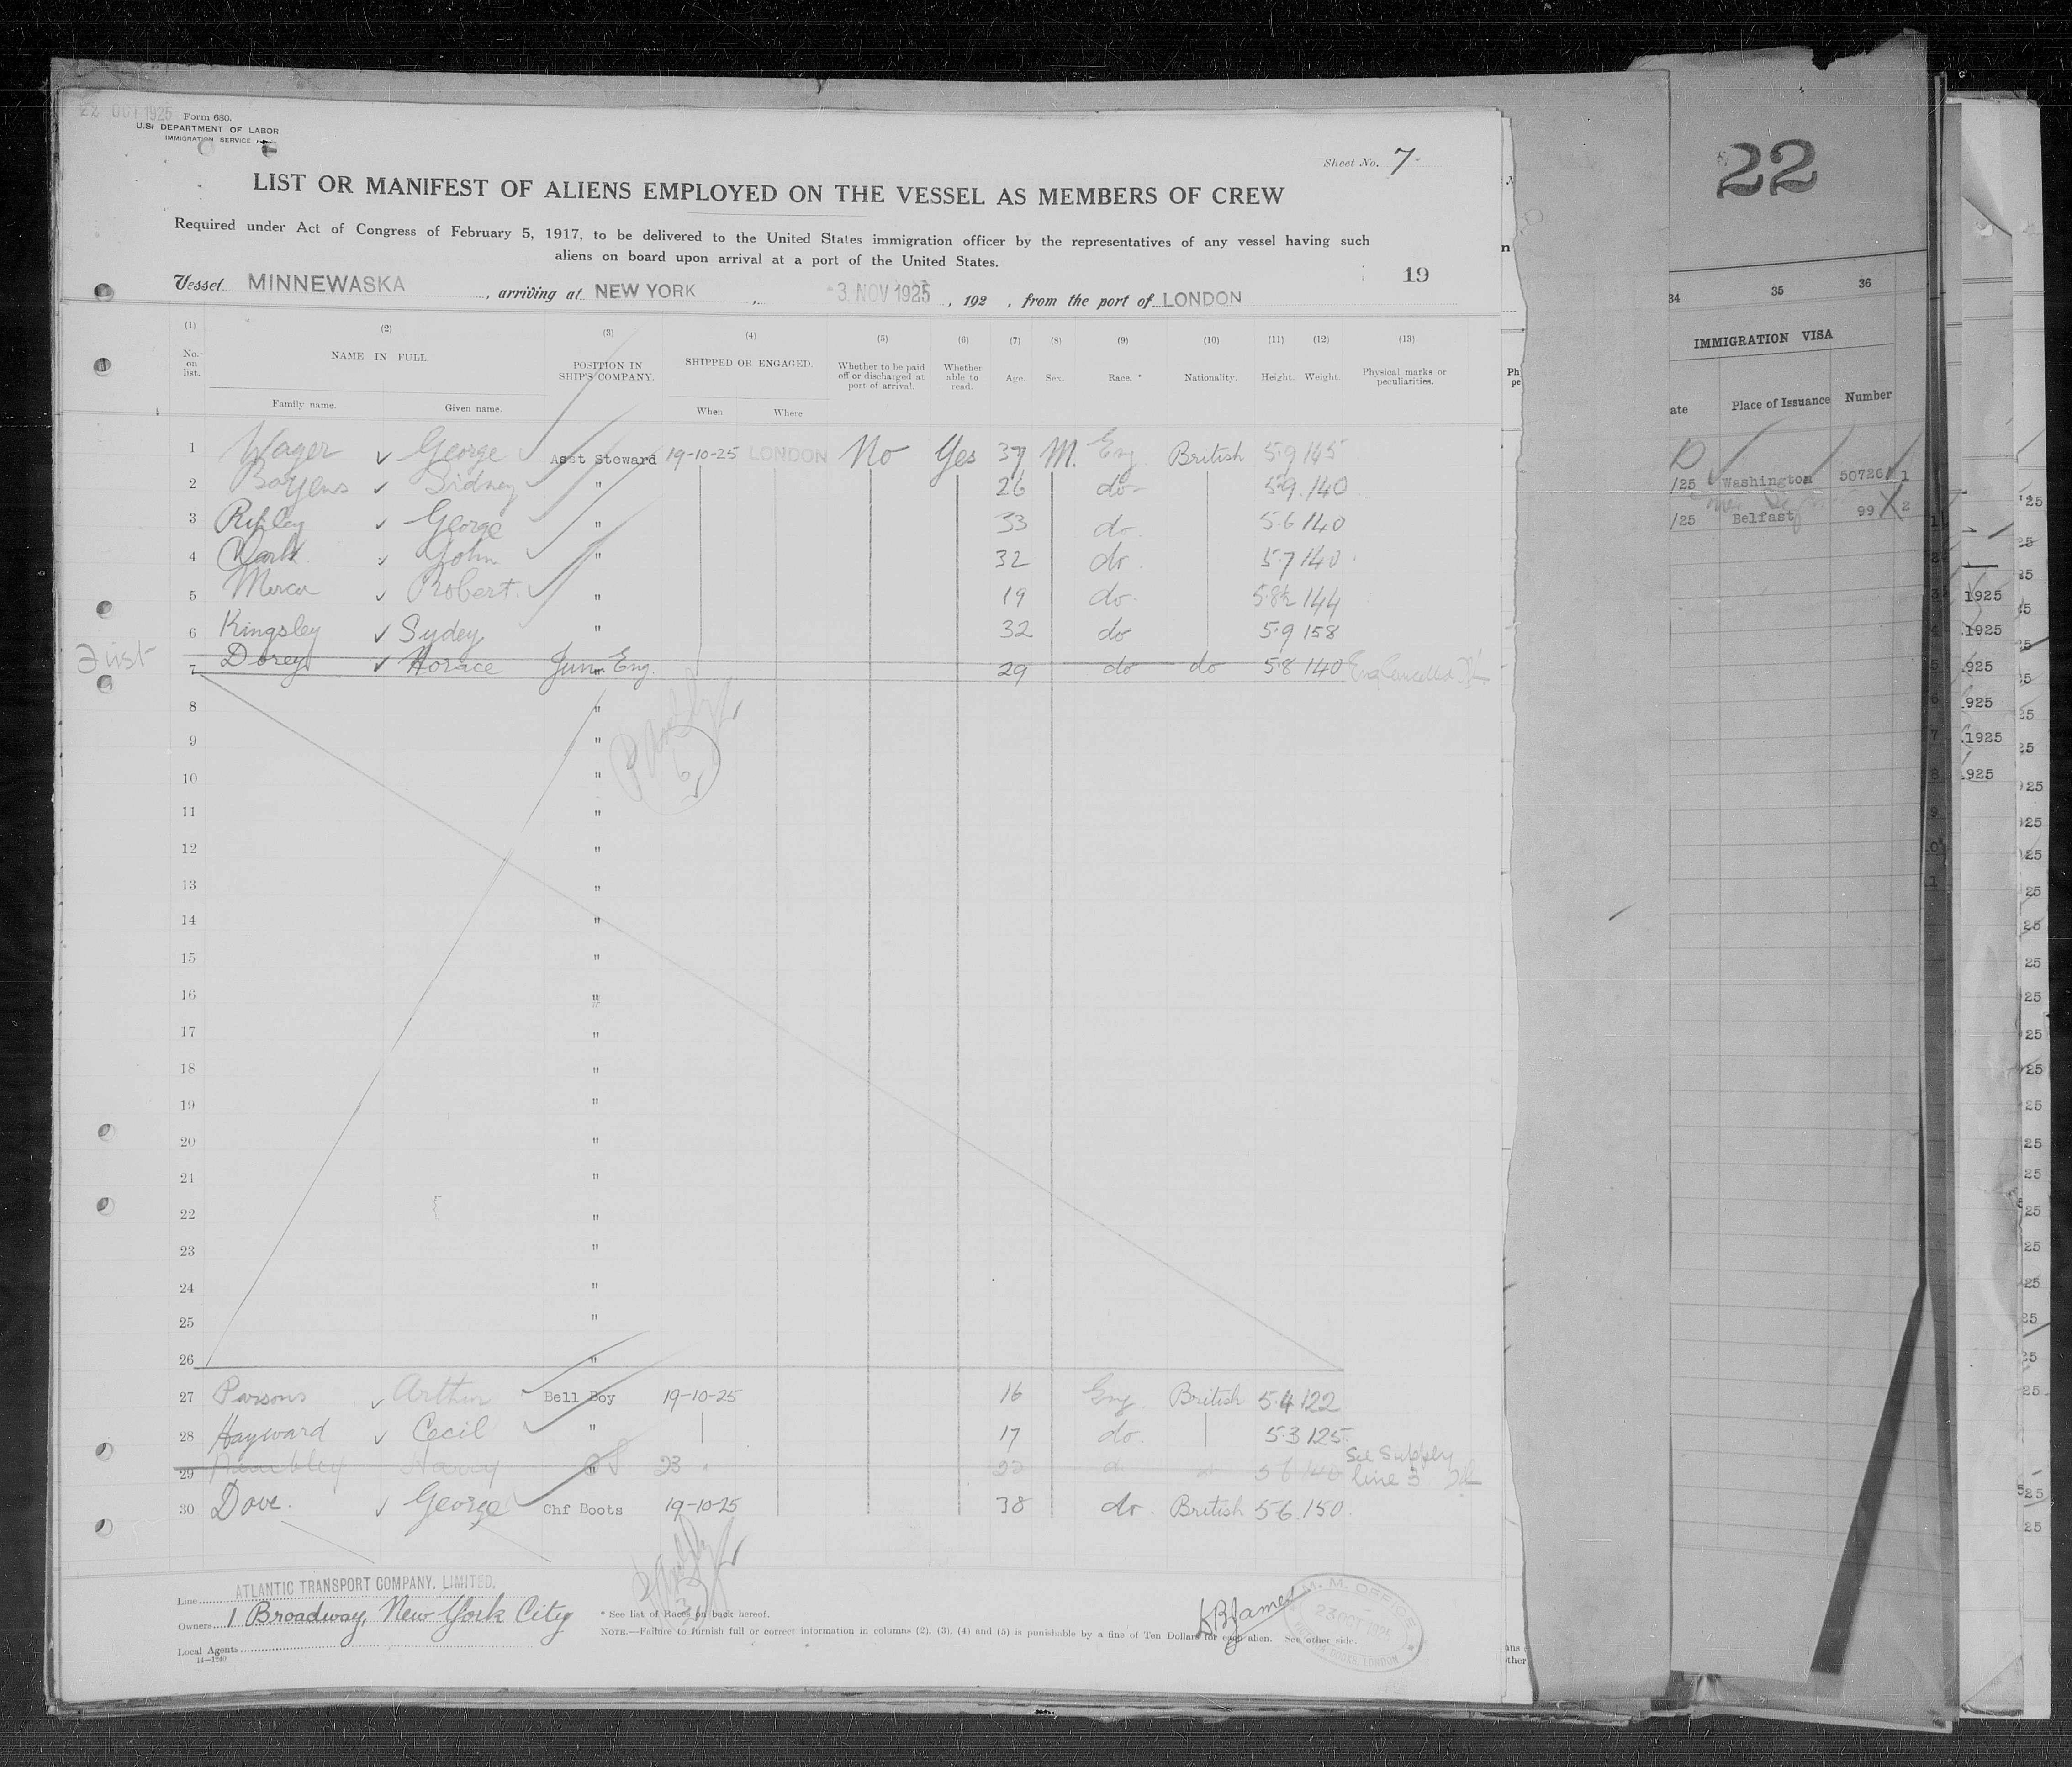 22 OCT 1925 Form 680.
U.S. DEPARTMENT OF LABOR
IMMIGRATION SERVICE
Sheet No. 7.
LIST OR MANIFEST OF ALIENS EMPLOYED ON THE VESSEL AS MEMBERS OF CREW
Required under Act of Congress of February 5, 1917, to be delivered to the United States immigration officer by the representatives of any vessel having such
aliens on board upon arrival at a port of the United States.
19
Vessel MINNEWASKA, arriving at NEW YORK, -3 NOV 1925, 192 , from the port of LONDON
(1) (2) (3) (4) (5) (6) (7) (8) (9) (10) (11) (12) (13)
No. on list. NAME IN FULL. POSITION IN SHIP'S COMPANY. SHIPPED OR ENGAGED. Whether to be paid off or discharged at port of arrival. Whether able to read. Age. Sex. Race. * Nationality. Height. Weight. Physical marks or peculiarities.
Family name. Given name. When Where
1 Wager George Asst Steward 19-10-25 LONDON No Yes 37 M. Eng British 5.9 145
2 Sidney " 26 do 5.9 140
3 George " 33 do. 5.6 140
4 Clark John " 32 do. 5.7 140
5 Mercer Robert. " 19 do. 5.8½ 144
6 Kingsley Sydey " 32 do 5.9 158
7 Dorey Horace Jun. Eng. 29 do do 5.8 140
8 "
9 "
10 "
11 "
12 "
13 "
14 "
15 "
16 "
17 "
18 "
19 "
20 "
21 "
22 "
23 "
24 "
25 "
26 "
27 Parsons Arthur Bell Boy 19-10-25 16 Eng. British 5.4 122
28 Hayward Cecil " 17 do. 5.3 125
29 Harry 23 5 6 140 See Supply line 3.
30 Dove. George Chf Boots 19-10-25 38 do. British 5.6. 150.
Line ATLANTIC TRANSPORT COMPANY, LIMITED.
Owners 1 Broadway, New York City
Local Agents
14—1240
* See list of Races on back hereof.
NOTE.—Failure to furnish full or correct information in columns (2), (3), (4) and (5) is punishable by a fine of Ten Dollars for each alien. See other side.
M. M. OFFICE
23 OCT 1925
DOCKS, LONDON
22
34 35 36
IMMIGRATION VISA
ate Place of Issuance Number
/25 Washington 50726 1
/25 Belfast 99 2
1925
.1925
.925
.925
.1925
.925